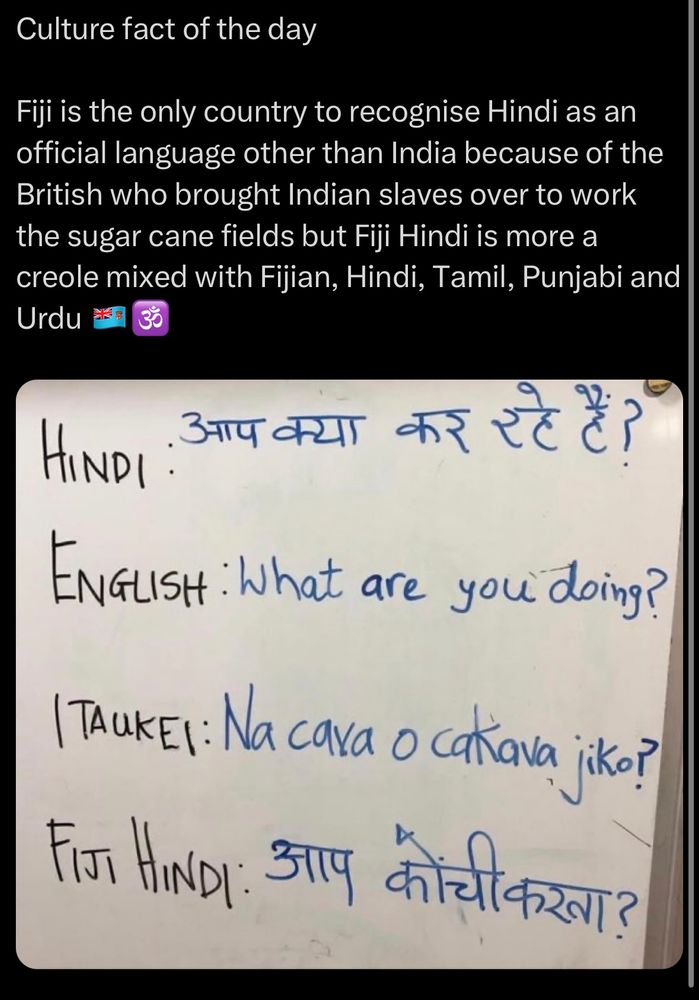 Culture fact of the day
Fiji is the only country to recognise Hindi as an
official language other than India because of the
British who brought Indian slaves over to work
the sugar cane fields but Fiji Hindi is more a
creole mixed with Fijian, Hindi, Tamil, Punjabi and
Urdu 🇫🇯 🕉️
HINDI : आप क्या कर रहे हैं?
ENGLISH : What are you doing?
ITAUKEI : Na cava o cakava jiko?
FIJI HINDI : आप कोंची करता?